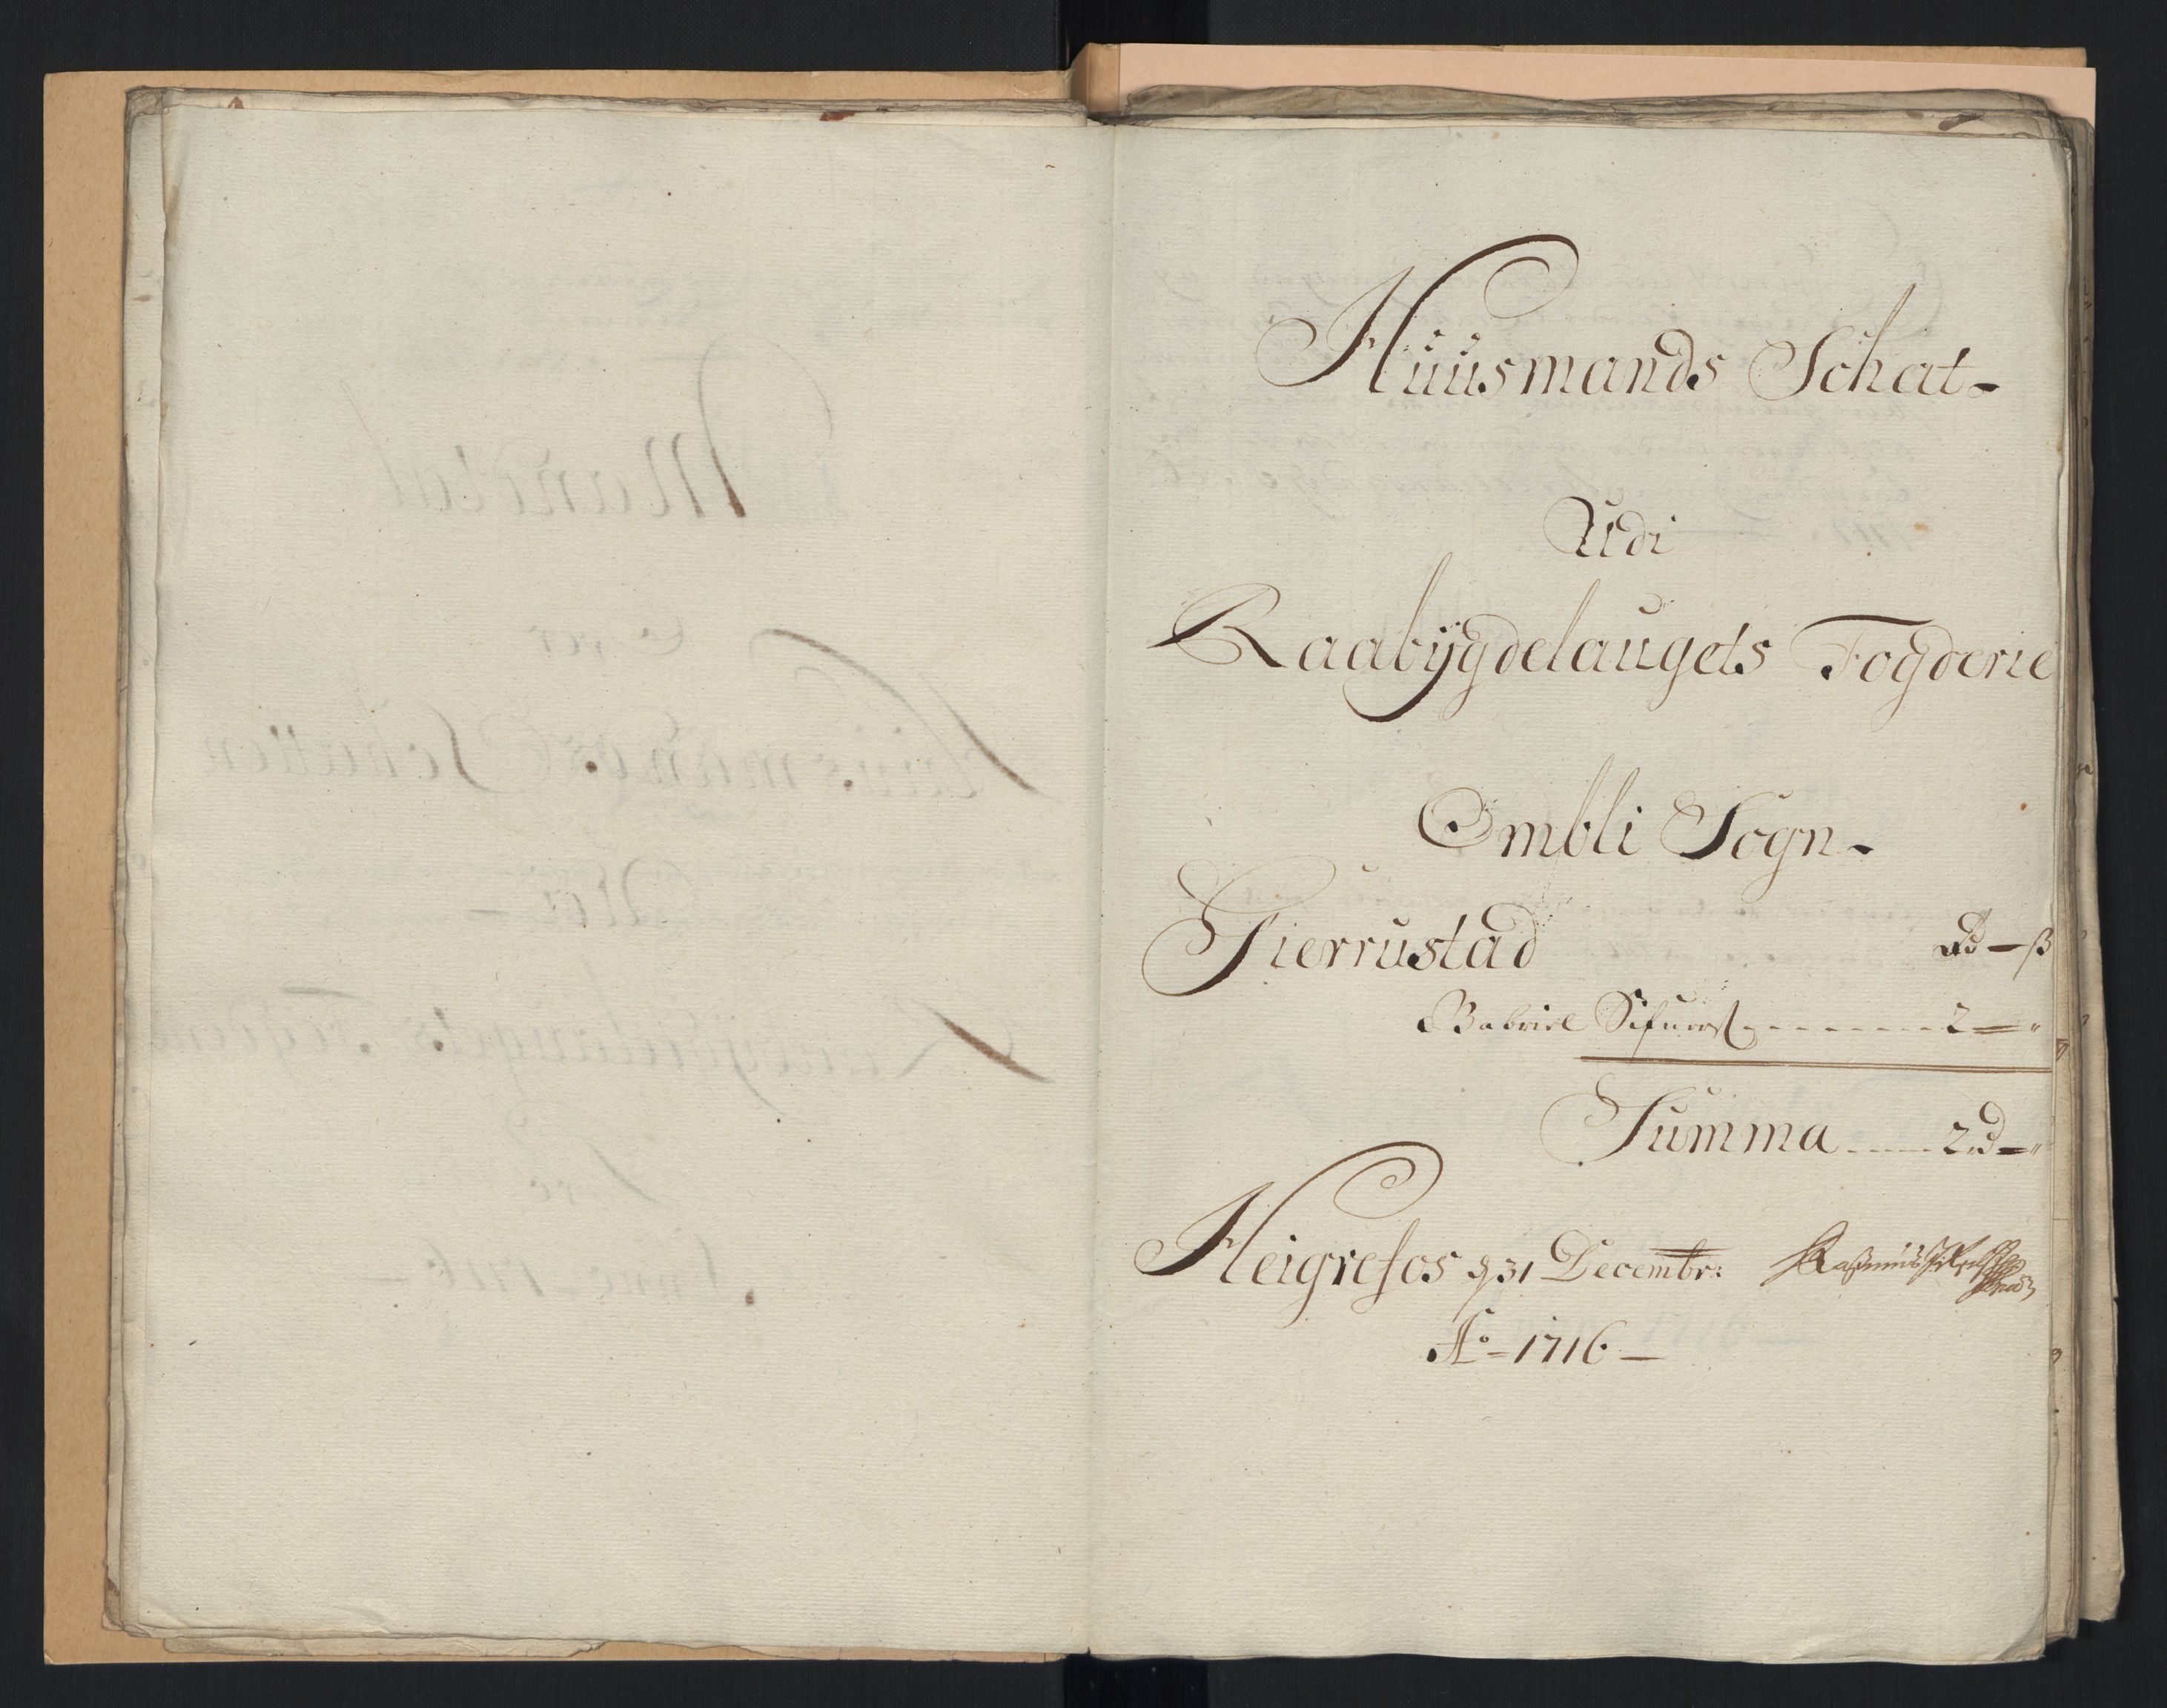 Huusmands Schat-
Udi
Raabÿgdelaugets Fogderie
Ombli Sogn-
Tierrustad rd — ß
Gabriel ------- 2 — "
Summa ---- 2 rd — "
Heigrefos d 31 Decembr: Rasmus
Ao - 1716 —